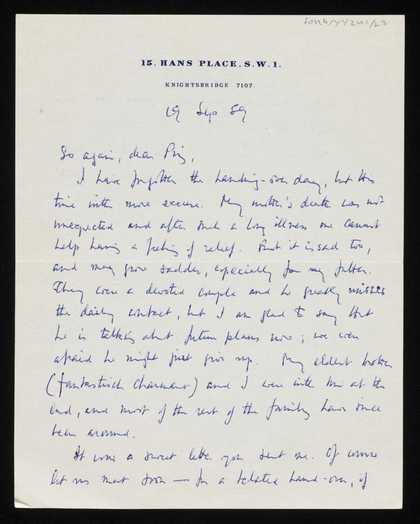 15, HANS PLACE, S.W.1.
KNIGHTSBRIDGE 7107
19 Sep 59
So again, dear
I have forgotten the handing-over day, but this
time with more excuse. My mother's death was not
unexpected and after such a long illness one cannot
help having a feeling of relief. But it is sad too,
and may grow sadder, especially for my father.
They were a devoted couple and he greatly misses
the daily contact, but I am glad to say that
he is talking about future plans now; we were
afraid he might just give up. My eldest brother
(fantastisch charmant) and I were with him at the
end, and most of the rest of the family have since
been around.
It was a sweet letter you sent me. Of course
let us meet soon — for a belated hand-over, if